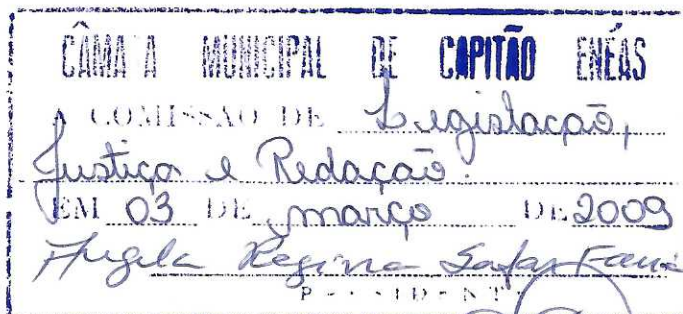 CÂMARA MUNICIPAL DE CAPITÃO ENÉAS
A COMISSÃO DE Legislação,
Justiça e Redação.
EM 03 DE março DE 2009
Regina
PRESIDENTE